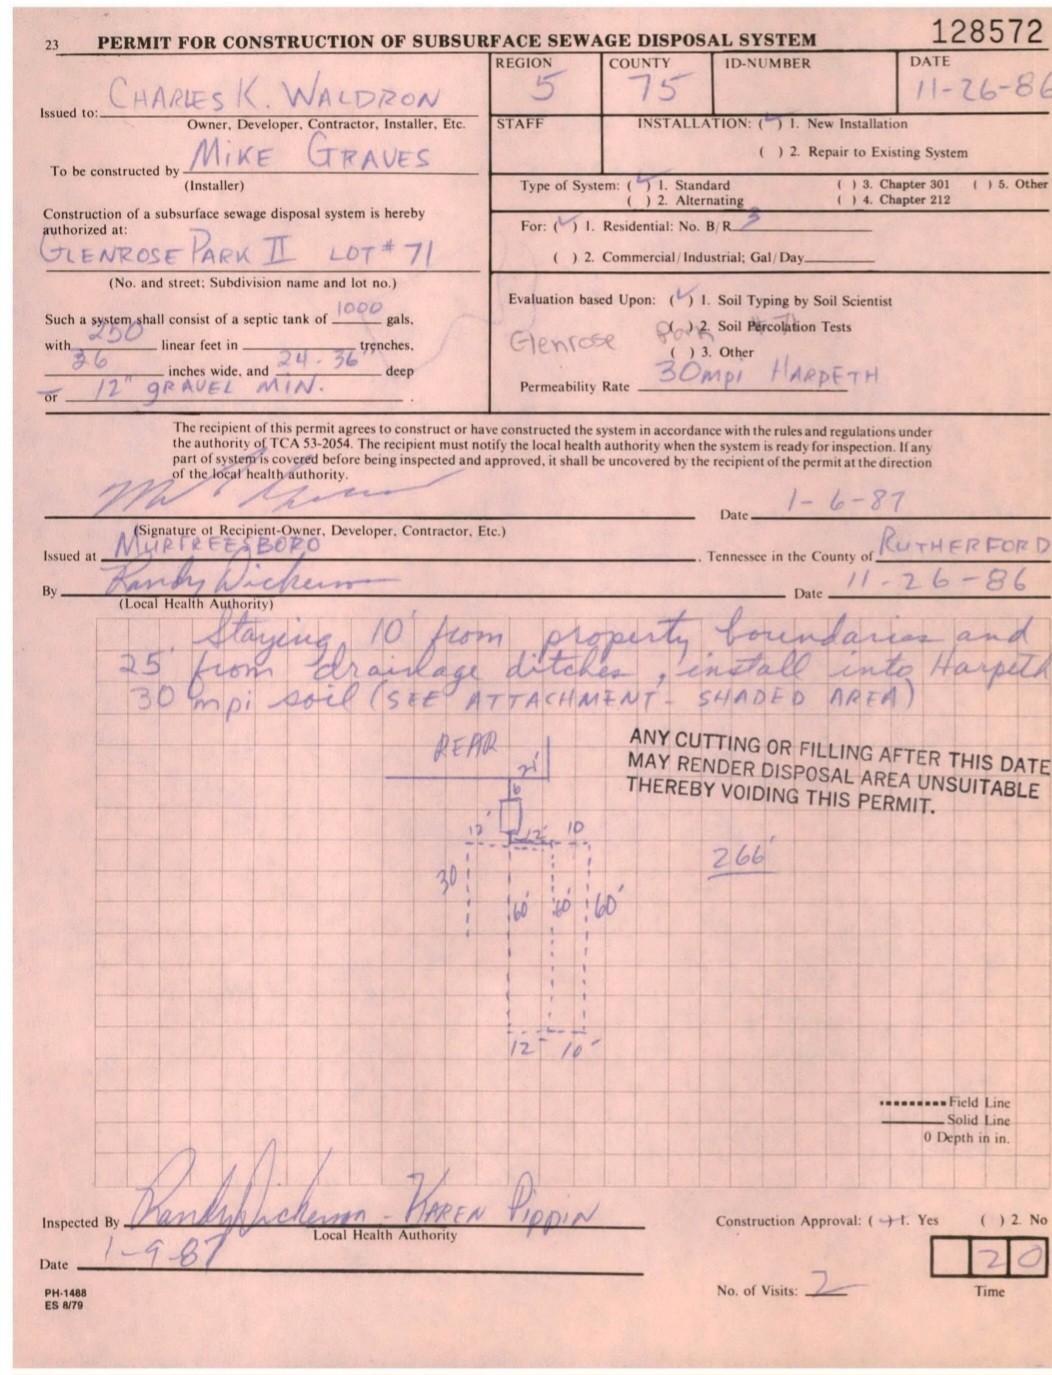 23 PERMIT FOR CONSTRUCTION OF SUBSURFACE SEWAGE DISPOSAL SYSTEM 128572
REGION COUNTY ID-NUMBER DATE
5 75 11-26-86
Issued to: CHARLES K. WALDRON
Owner, Developer, Contractor, Installer, Etc.
STAFF INSTALLATION: (✓) 1. New Installation
( ) 2. Repair to Existing System
To be constructed by MIKE GRAVES
(Installer)
Type of System: (✓) 1. Standard ( ) 3. Chapter 301 ( ) 5. Other
( ) 2. Alternating ( ) 4. Chapter 212
Construction of a subsurface sewage disposal system is hereby
authorized at:
GLENROSE PARK II LOT # 71
(No. and street; Subdivision name and lot no.)
For: (✓) 1. Residential: No. B/R 3
( ) 2. Commercial/Industrial; Gal/Day
Such a system shall consist of a septic tank of 1000 gals.
with 250 linear feet in trenches.
36 inches wide, and 24-36" deep
or 12" GRAVEL MIN.
Evaluation based Upon: (✓) 1. Soil Typing by Soil Scientist
( ) 2. Soil Percolation Tests
Glenrose Park
( ) 3. Other
Permeability Rate 30mpi HARPETH
The recipient of this permit agrees to construct or have constructed the system in accordance with the rules and regulations under
the authority of TCA 53-2054. The recipient must notify the local health authority when the system is ready for inspection. If any
part of system is covered before being inspected and approved, it shall be uncovered by the recipient of the permit at the direction
of the local health authority.
Date 1-6-87
(Signature of Recipient-Owner, Developer, Contractor, Etc.)
Issued at MURFREESBORO, Tennessee in the County of RUTHERFORD
By Randy Dickerson Date 11-26-86
(Local Health Authority)
Staying 10' from property boundaries and
25' from drainage ditches, install into Harpeth
30 mpi soil (SEE ATTACHMENT - SHADED AREA)
ANY CUTTING OR FILLING AFTER THIS DATE
MAY RENDER DISPOSAL AREA UNSUITABLE
THEREBY VOIDING THIS PERMIT.
REAR
21'
6
12' 12' 10
266'
30
60' 60' 60'
12' 10'
Field Line
Solid Line
0 Depth in in.
Inspected By Randy Dickerson - KAREN PIPPIN
Local Health Authority
Construction Approval: (✓) 1. Yes ( ) 2. No
Date 1-9-87
20
No. of Visits: 2 Time
PH-1488
ES 8/79